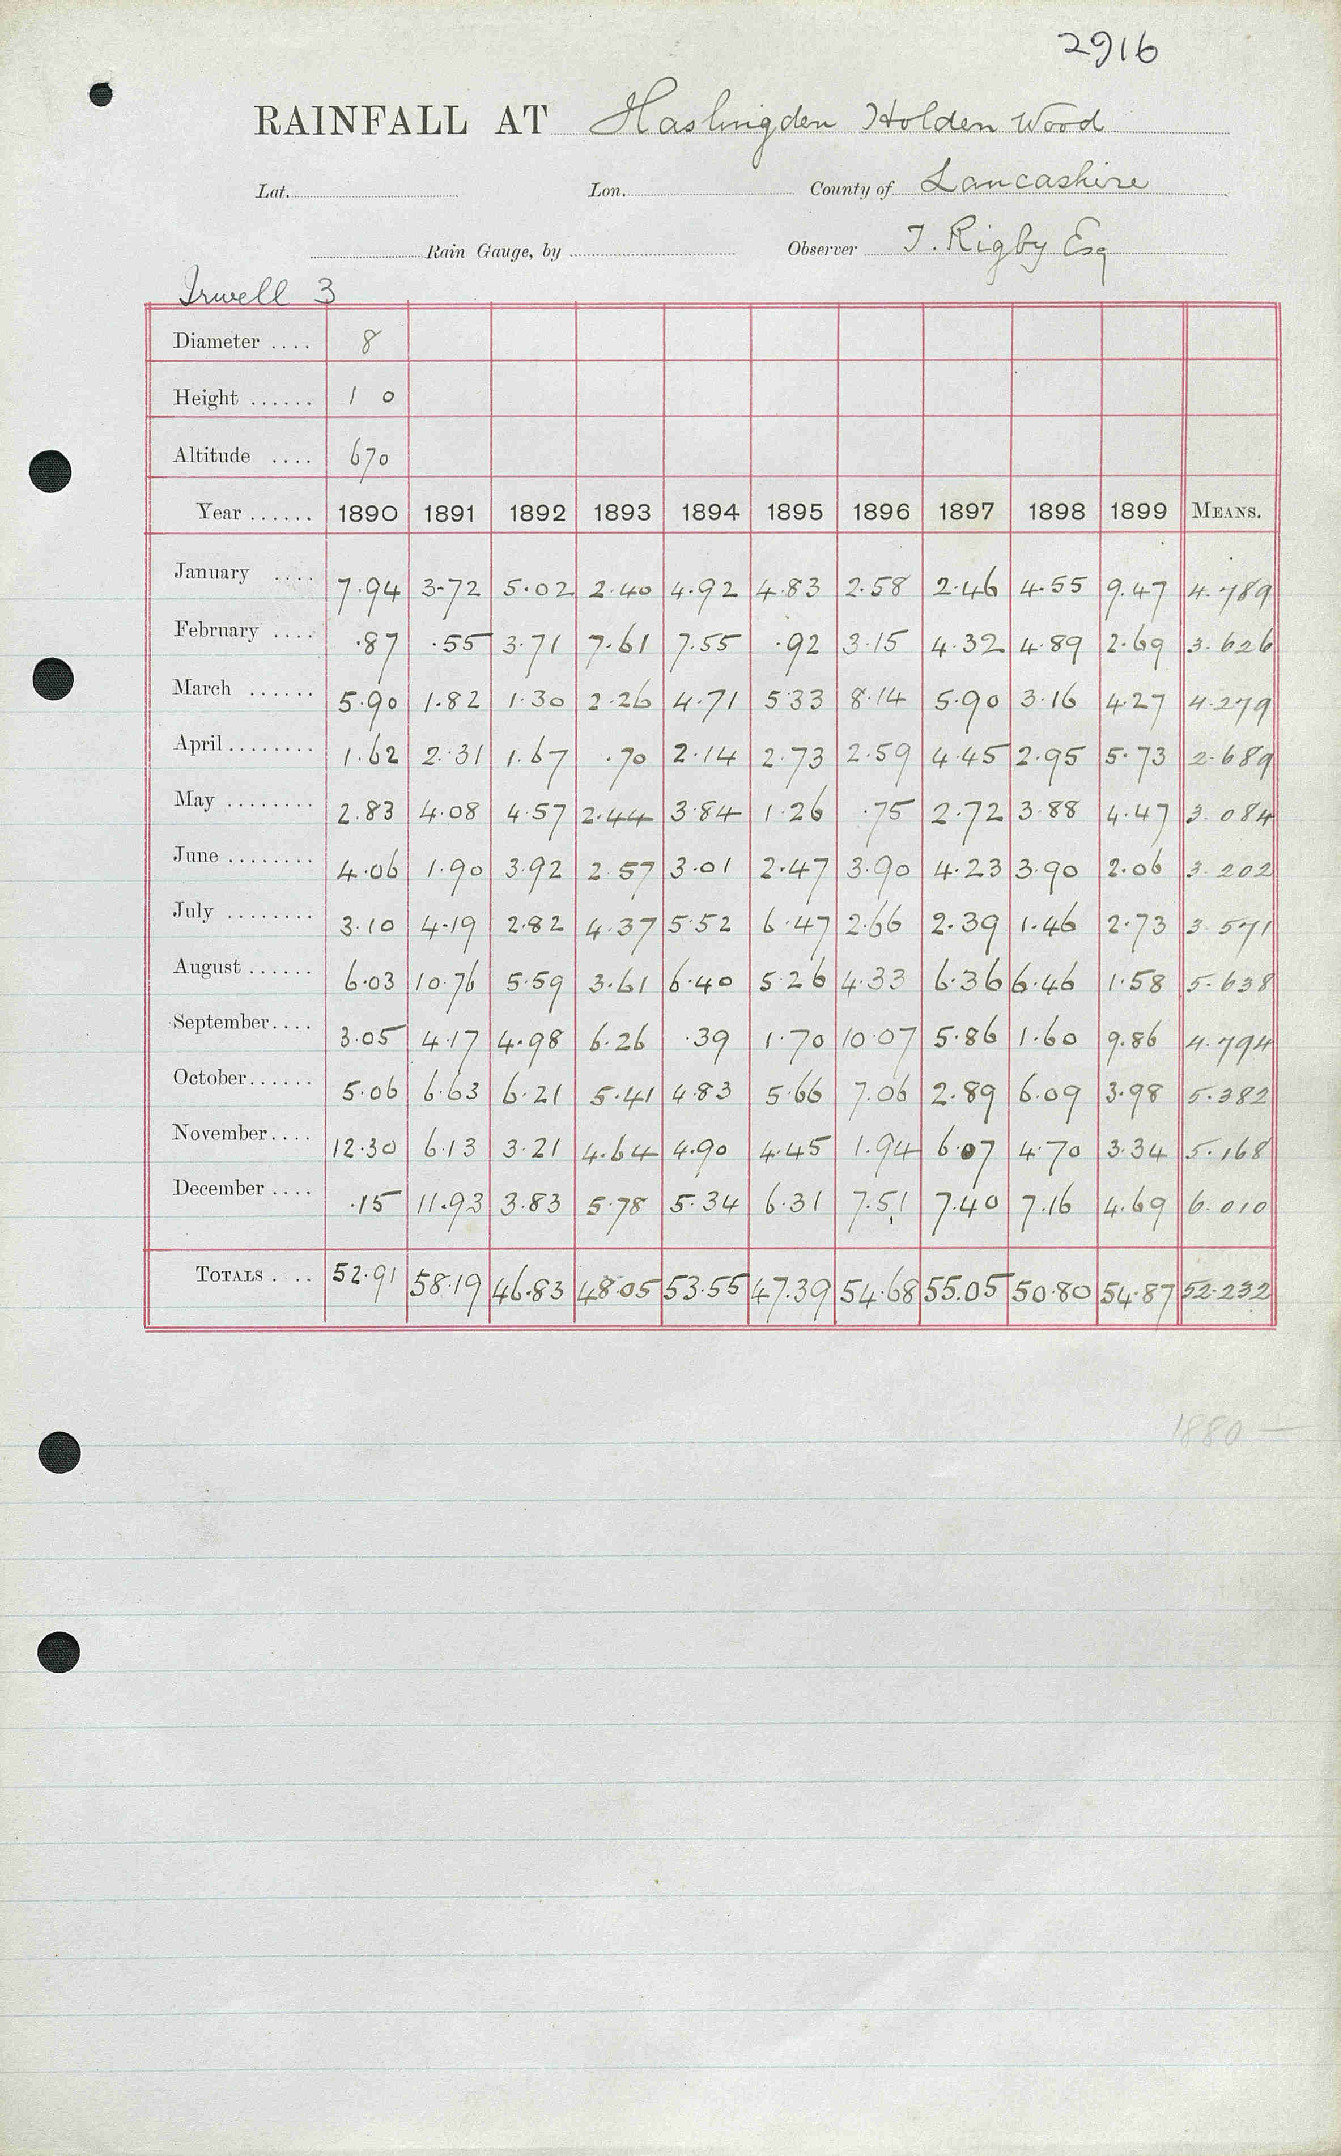 2916
RAINFALL AT Haslingden Holden Wood
Lat. Lon. County of Lancashire
Rain Gauge, by Observer T. Rigby Esq
Irwell 3
Diameter .... 8
Height ...... 1 0
Altitude .... 670
Year ...... 1890 1891 1892 1893 1894 1895 1896 1897 1898 1899 MEANS.
January .... 7.94 3.72 5.02 2.40 4.92 4.83 2.58 2.46 4.55 9.47 4.789
February .... .87 .55 3.71 7.61 7.55 .92 3.15 4.32 4.89 2.69 3.626
March ...... 5.90 1.82 1.30 2.26 4.71 5.33 8.14 5.90 3.16 4.27 4.279
April ........ 1.62 2.31 1.67 .70 2.14 2.73 2.59 4.45 2.95 5.73 2.689
May ........ 2.83 4.08 4.57 2.44 3.84 1.26 .75 2.72 3.88 4.47 3.084
June ........ 4.06 1.90 3.92 2.57 3.01 2.47 3.90 4.23 3.90 2.06 3.202
July ........ 3.10 4.19 2.82 4.37 5.52 6.47 2.66 2.39 1.46 2.73 3.571
August ...... 6.03 10.76 5.59 3.61 6.40 5.26 4.33 6.36 6.46 1.58 5.638
September .... 3.05 4.17 4.98 6.26 .39 1.70 10.07 5.86 1.60 9.86 4.794
October ...... 5.06 6.63 6.21 5.41 4.83 5.66 7.06 2.89 6.09 3.98 5.382
November .... 12.30 6.13 3.21 4.64 4.90 4.45 1.94 6.07 4.70 3.34 5.168
December .... .15 11.93 3.83 5.78 5.34 6.31 7.51 7.40 7.16 4.69 6.010
TOTALS .... 52.91 58.19 46.83 48.05 53.55 47.39 54.68 55.05 50.80 54.87 52.232
1880 —